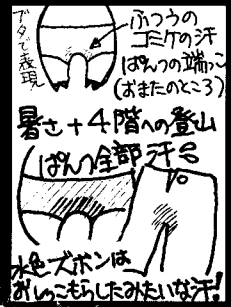 ブタで表現
ふつうの
コミケの汗
ぱんつの端っこ
(おまたのところ)
暑さ+4階への登山
ぱんつ全部汗
水色ズボンは
おしっこもらしたみたいな汗!